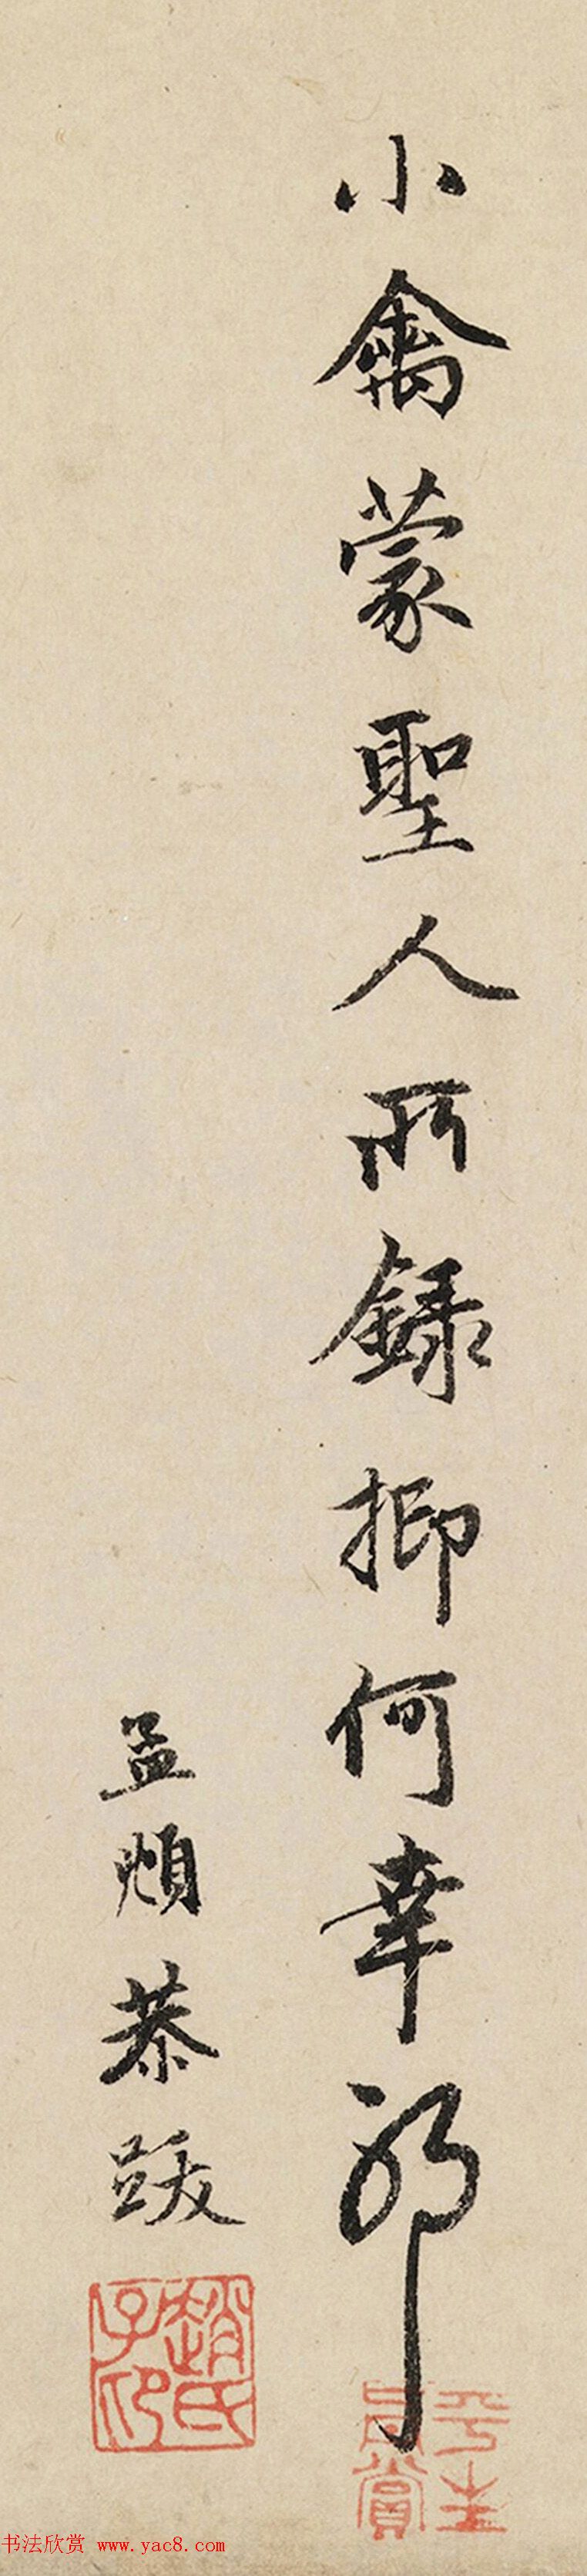 小禽蒙聖人所録抑何幸耶
孟頫恭跋
趙氏子印
平生真賞
书法欣赏 www.yac8.com